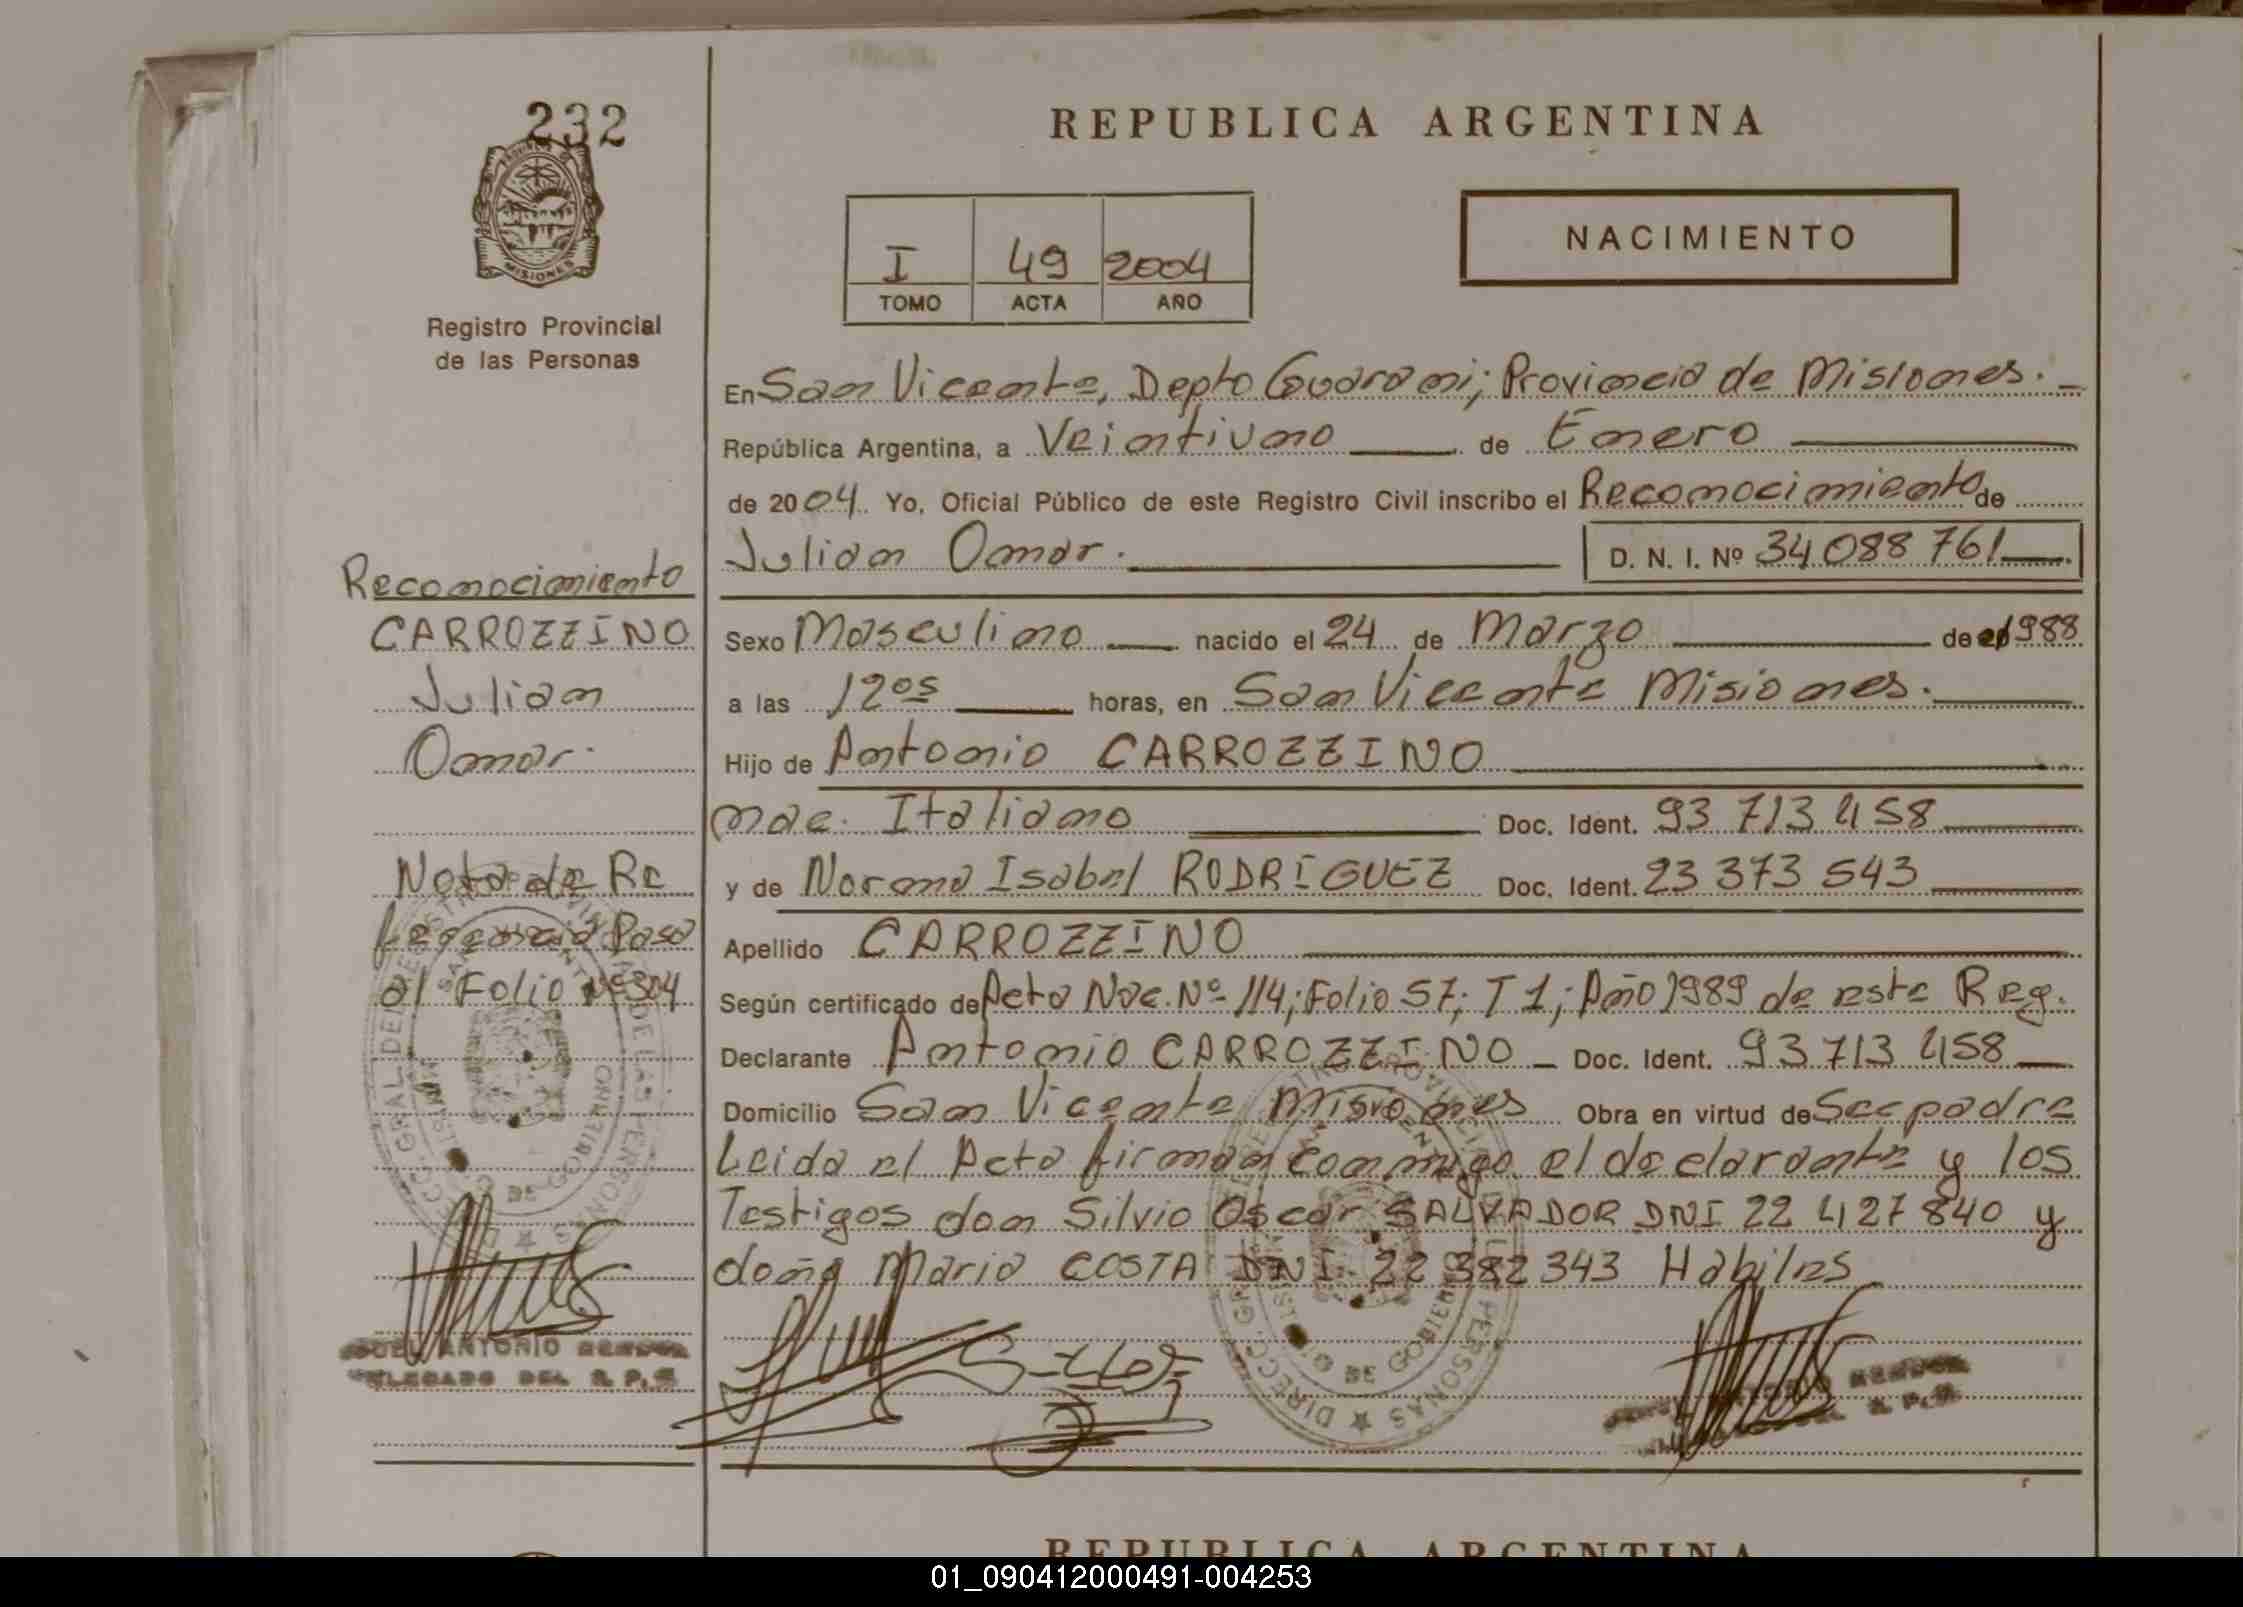 232
PROVINCIA DE
MISIONES
Registro Provincial
de las Personas
Reconocimiento
CARROZZINO
Julian
Omar.
Nota de Re
ferencia Pasa
al Folio Nº 304
REPUBLICA ARGENTINA
NACIMIENTO
I 49 2004
TOMO ACTA AÑO
En San Vicente, Depto Guarani; Provincia de Misiones.
República Argentina, a Veintiuno de Enero
de 2004. Yo, Oficial Público de este Registro Civil inscribo el Reconocimiento de
Julian Omar. D. N. I. Nº 34 088 761
Sexo Masculino nacido el 24 de Marzo de 1988
a las 12 os horas, en San Vicente Misiones.
Hijo de Antonio CARROZZINO
nac. Italiano Doc. Ident. 93 713 458
y de Norma Isabel RODRIGUEZ Doc. Ident. 23 373 543
Apellido CARROZZINO
Según certificado de Acta Nac. Nº 114; Folio 57; T 1; Año 1989 de este Reg.
Declarante Antonio CARROZZINO Doc. Ident. 93 713 458
Domicilio San Vicente Misiones Obra en virtud de Ser padre
Leida el Acta firman conmigo el declarante y los
Testigos don Silvio Oscar SALVADOR DNI 22 427 840 y
doña Maria COSTA DNI 22 382 343 Habiles
DIRECC. GRAL. DEL REGISTRO PROVINCIAL DE LAS PERSONAS
DE GOBIERNO
ANTONIO
DEL R. P.
DIRECC. GRAL. DEL REGISTRO PROVINCIAL DE LAS PERSONAS
DE GOBIERNO
REPUBLICA ARGENTINA
01_090412000491-004253